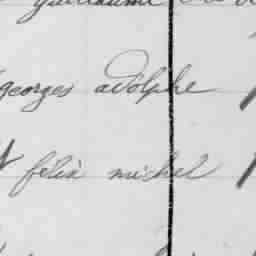 Guillaume
georges adolphe
felix michel